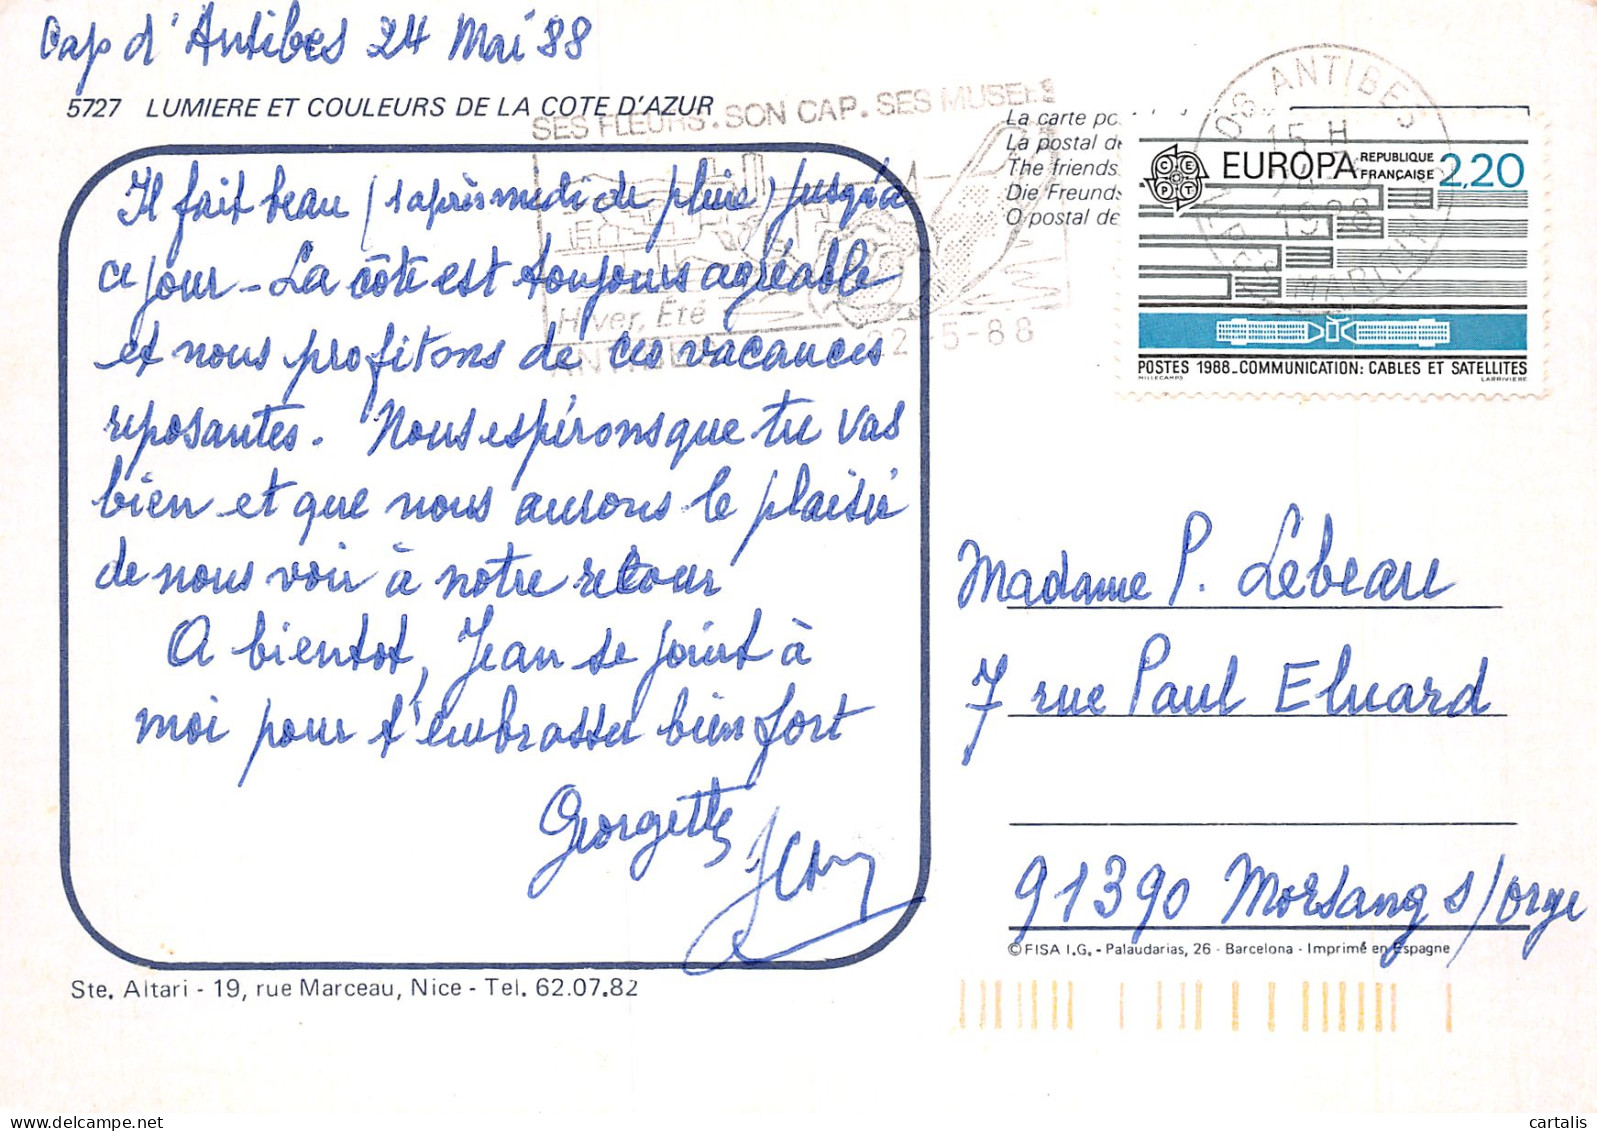 Cap d'Antibes 24 Mai 88
5727 LUMIERE ET COULEURS DE LA COTE D'AZUR
SES FLEURS. SON CAP. SES MUSEES
Hiver, Été
5-88
Il fait beau (1 après midi de pluie) jusqu'à
ce jour - La côte est toujours agréable
et nous profitons de ces vacances
reposantes. Nous espérons que tu vas
bien et que nous aurons le plaisir
de nous voir à notre retour
A bientôt, Jean se joint à
moi pour t'embrasser bien fort
Georgette
Jean
Ste. Altari - 19, rue Marceau, Nice - Tel. 62.07.82
La carte po
La postal de
The friends
Die Freunds
O postal de
ANTIBES
15 H
1988
MARITIM
CEPT
EUROPA REPUBLIQUE FRANÇAISE 2,20
POSTES 1988_COMMUNICATION: CABLES ET SATELLITES
MILLECAMPS LARRIVIERE
Madame P. Lebeau
7 rue Paul Eluard
91390 Morsang s/orge
©FISA I.G. - Palaudarias, 26 - Barcelona - Imprimé en Espagne
cartalis